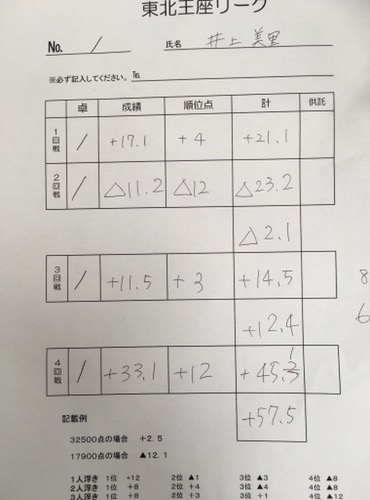 東北王座リーグ
No. 1 氏名 井上 美里
※必ず記入してください。℡
卓 成績 順位点 計 供託
1回戦 1 +17.1 +4 +21.1
2回戦 1 △11.2 △12 △23.2
△2.1
3回戦 1 +11.5 +3 +14.5
+12.4
4回戦 1 +33.1 +12 +45.1
+57.5
記載例
32500点の場合 +2.5
17900点の場合 ▲12.1
1人浮き 1位 +12 2位 ▲1 3位 ▲3 4位 ▲8
2人浮き 1位 +8 2位 +4 3位 ▲4 4位 ▲8
3人浮き 1位 +8 2位 +3 3位 +1 4位 ▲12